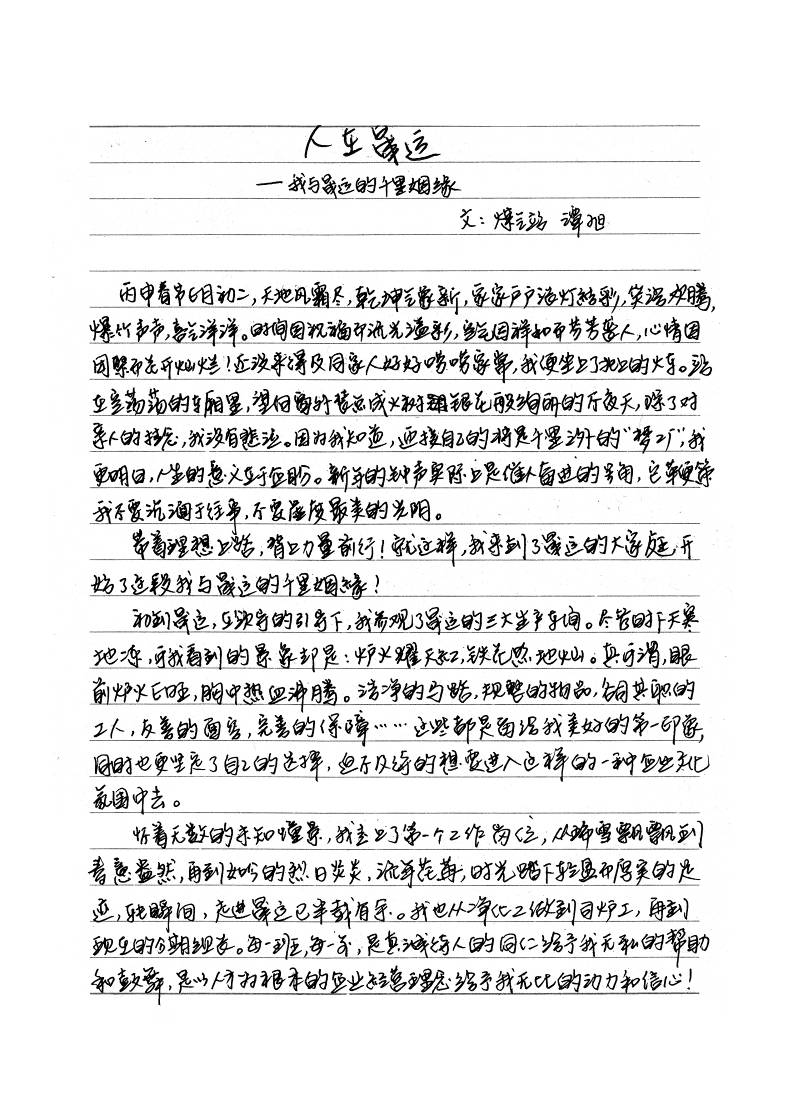 人在晟运
——我与晟运的千里姻缘
文：煤气站 谭旭
丙申春节正月初二，天地风霜尽，乾坤气象新，家家户户张灯结彩，笑语欢腾，
爆竹声声，喜气洋洋。时间因祝福而流光溢彩，空气因祥和而芬芳袭人，心情因
团聚而花开灿烂！还没来得及同家人好好唠唠家常，我便坐上了北上的火车。站
在空荡荡的车厢里，望向窗外装点成火树银花般绚丽的不夜天，除了对
亲人的挂念，我没有悲泣。因为我知道，迎接自己的将是千里之外的“梦工厂”；我
更明白，人生的意义在于企盼。新年的钟声实际上是催人奋进的号角，它鞭策
我不要沉湎于往事，不要虚度最美的光明。
带着理想上路，背上力量前行！就这样，我来到了晟运的大家庭，开
始了这段我与晟运的千里姻缘！
初到晟运，在领导的引导下，我参观了晟运的三大生产车间。尽管时下天寒
地冻，可我看到的景象却是：炉火耀天红，铁花忽地灿。真可谓，眼
前炉火正旺，胸中热血沸腾。洁净的马路，规整的物品，各司其职的
工人，友善的面容，完善的保障……这些都是留给我美好的第一印象，
同时也更坚定了自己的选择，迫不及待的想要进入这样的一种企业文化
氛围中去。
怀着无数的未知憧憬，我走上了第一个工作岗位，从瑞雪飘飘到
春意盎然，再到如今的烈日炎炎，流年花莓，时光踏下轻盈而厚实的足
迹，转瞬间，走进晟运已半载有余。我也从净化工做到司炉工，再到
现在的分期组长。每一班，每一天，是真诚待人的同仁给予我无私的帮助
和鼓舞，是以人才为根本的企业经营理念给予我无比的动力和信心！